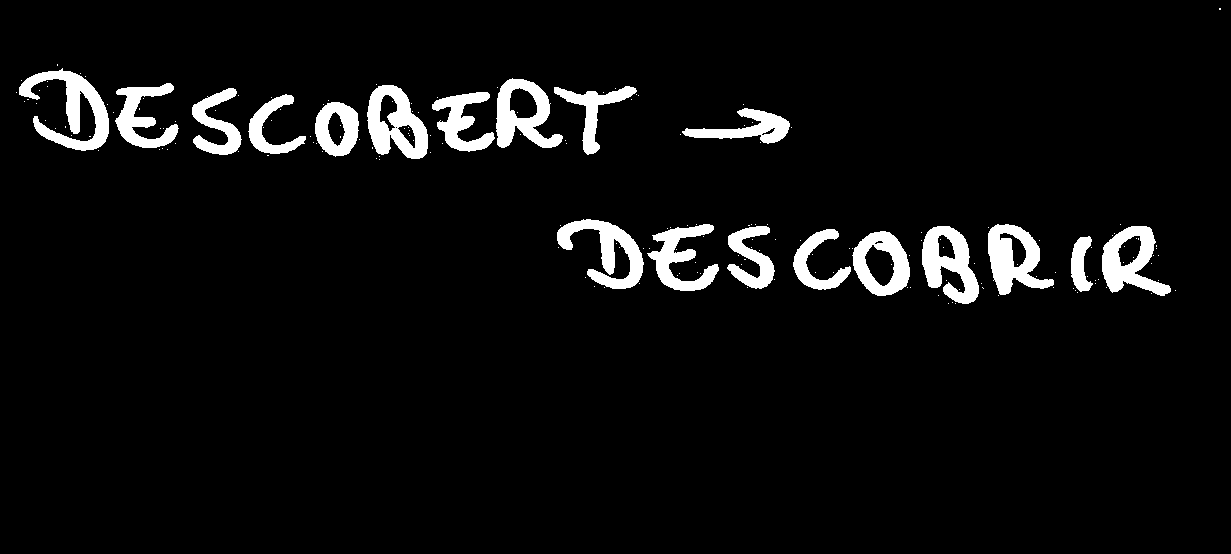 DESCOBERT →
DESCOBRIR